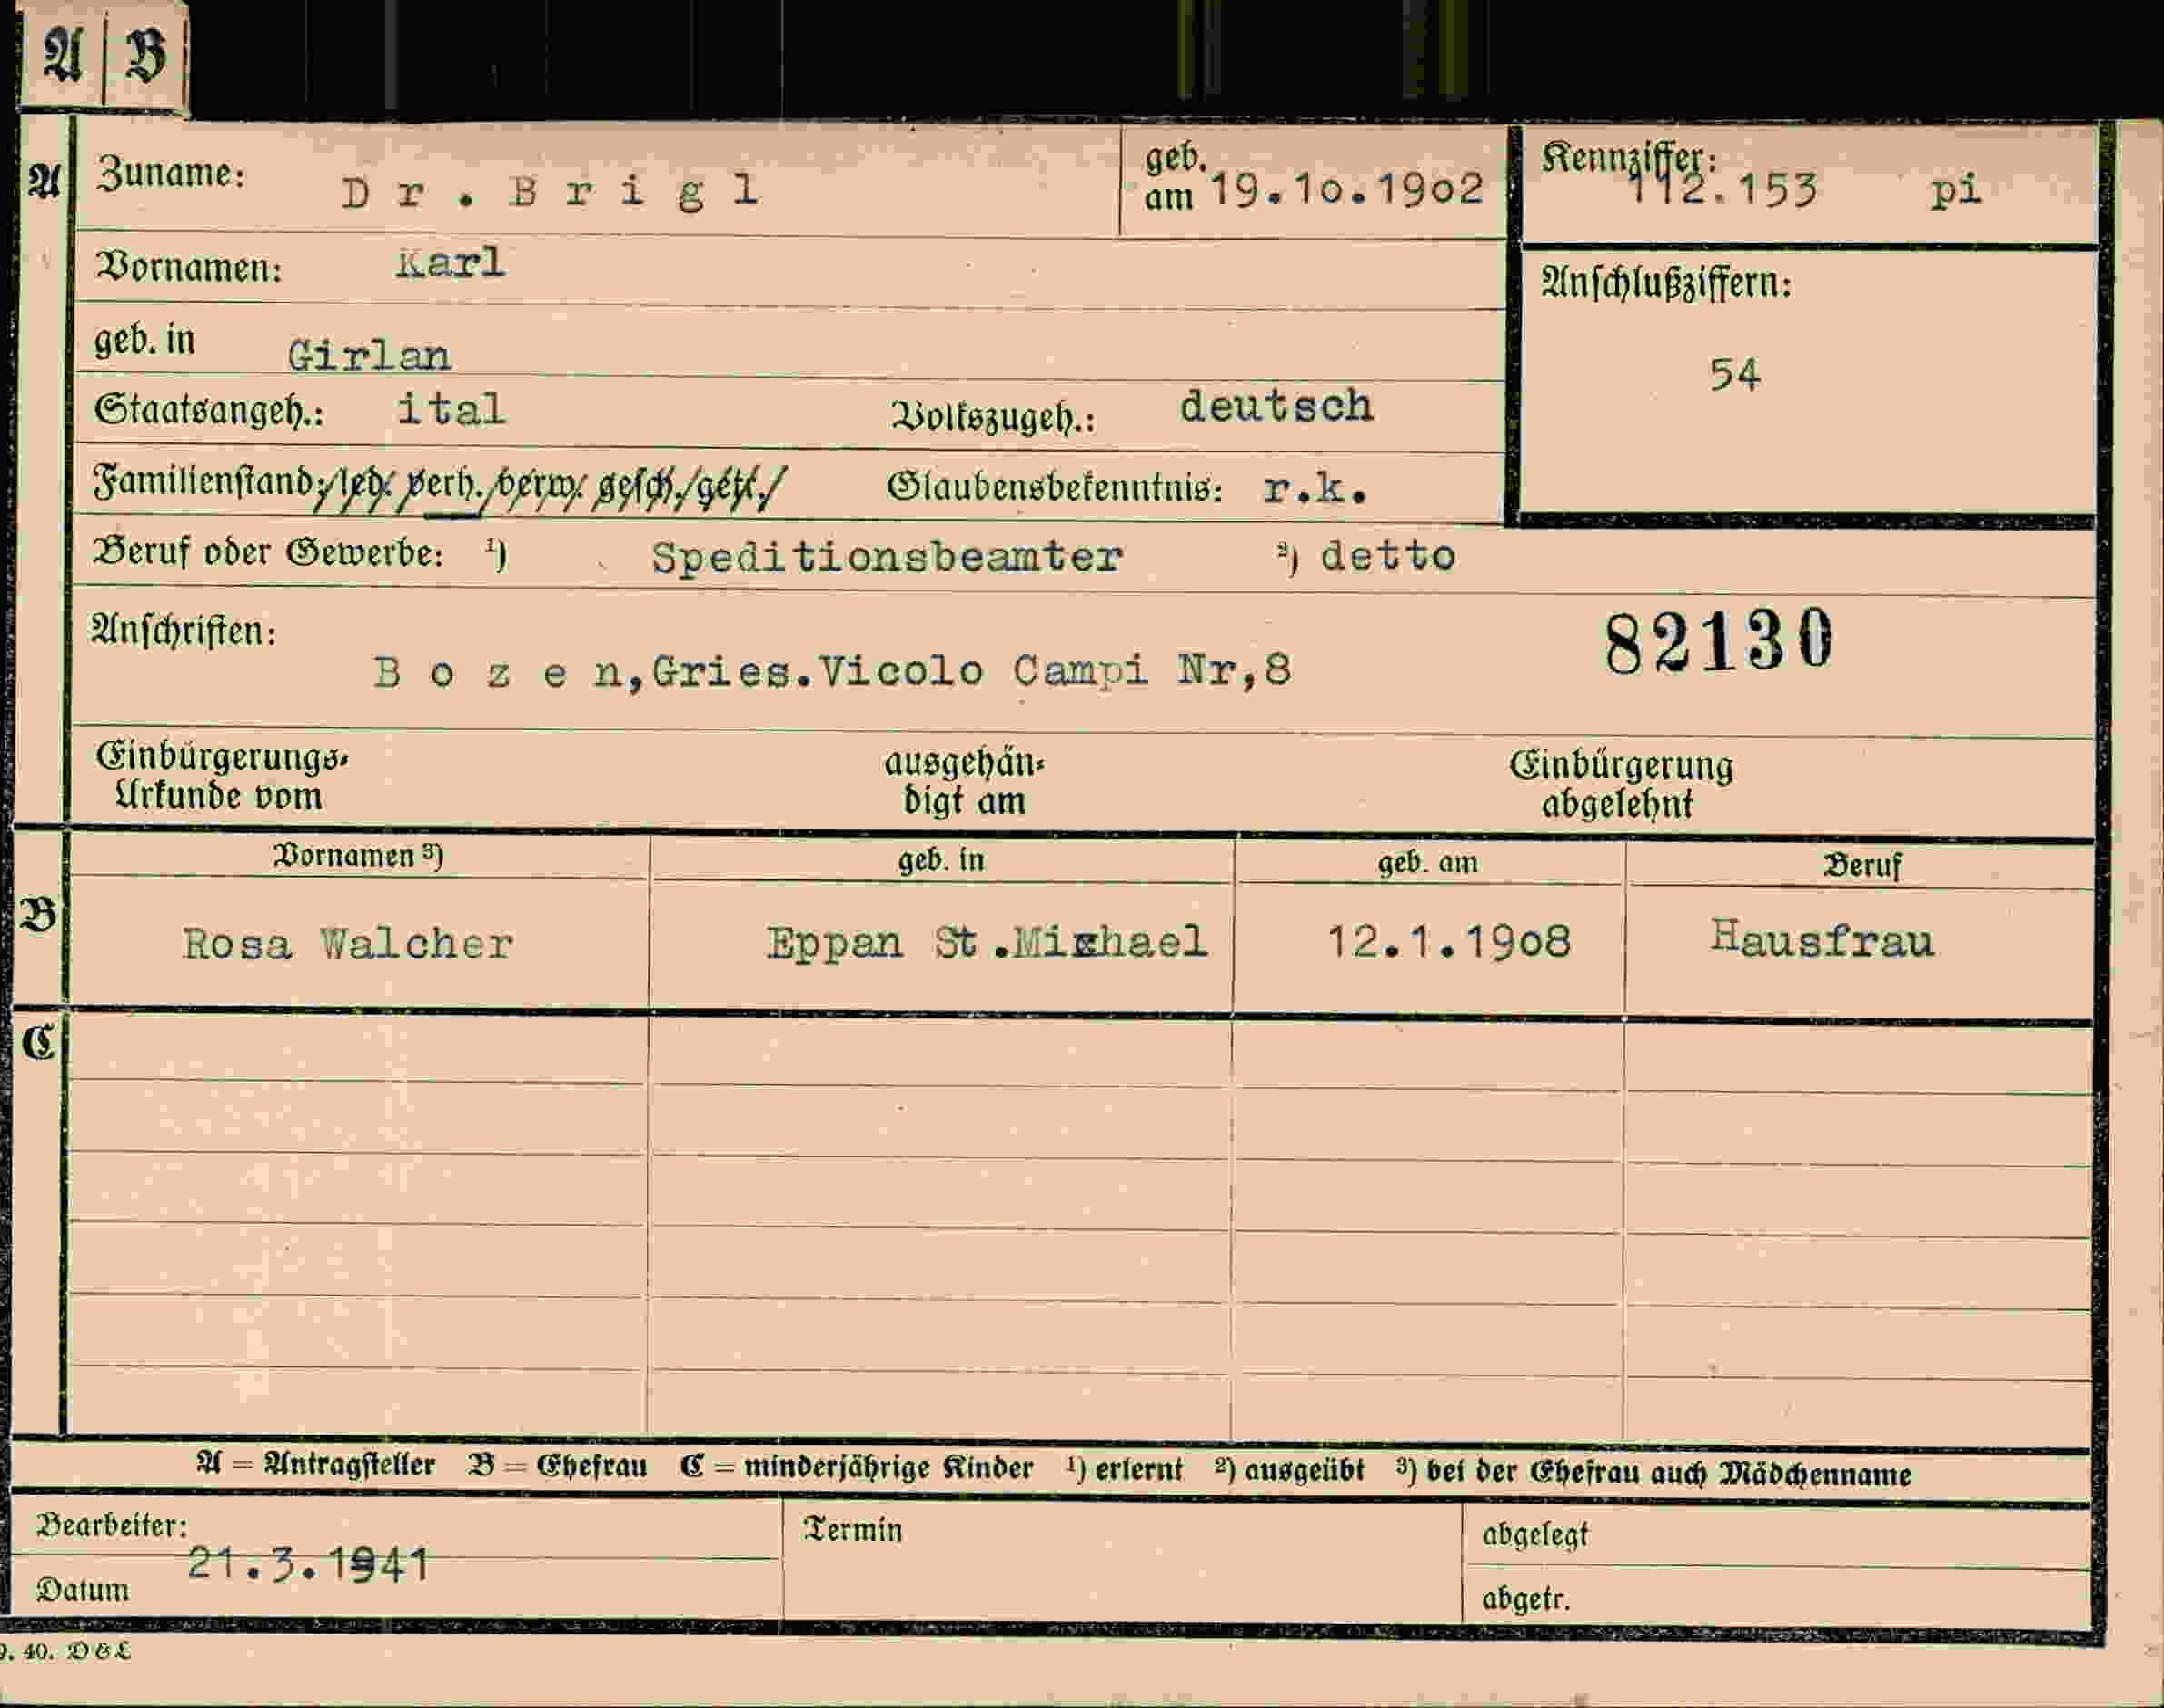 A B
A Zuname: Dr. Brigl geb. am 19.10.1902 Kennziffer: 112.153 pi
Vornamen: Karl
Anschlußziffern:
geb. in Girlan
54
Staatsangeh.: ital Volkszugeh.: deutsch
Familienstand: led. verh. verw. gesch. getr. Glaubensbekenntnis: r.k.
Beruf oder Gewerbe: ¹) Speditionsbeamter ²) detto
Anschriften:
82130
Bozen,Gries.Vicolo Campi Nr,8
Einbürgerungs- ausgehän- Einbürgerung
Urkunde vom digt am abgelehnt
Vornamen ³) geb. in geb. am Beruf
B Rosa Walcher Eppan St.Mixhael 12.1.1908 Hausfrau
C
A = Antragsteller B = Ehefrau C = minderjährige Kinder ¹) erlernt ²) ausgeübt ³) bei der Ehefrau auch Mädchenname
Bearbeiter: Termin abgelegt
21.3.1941
Datum abgetr.
9. 40. D&L